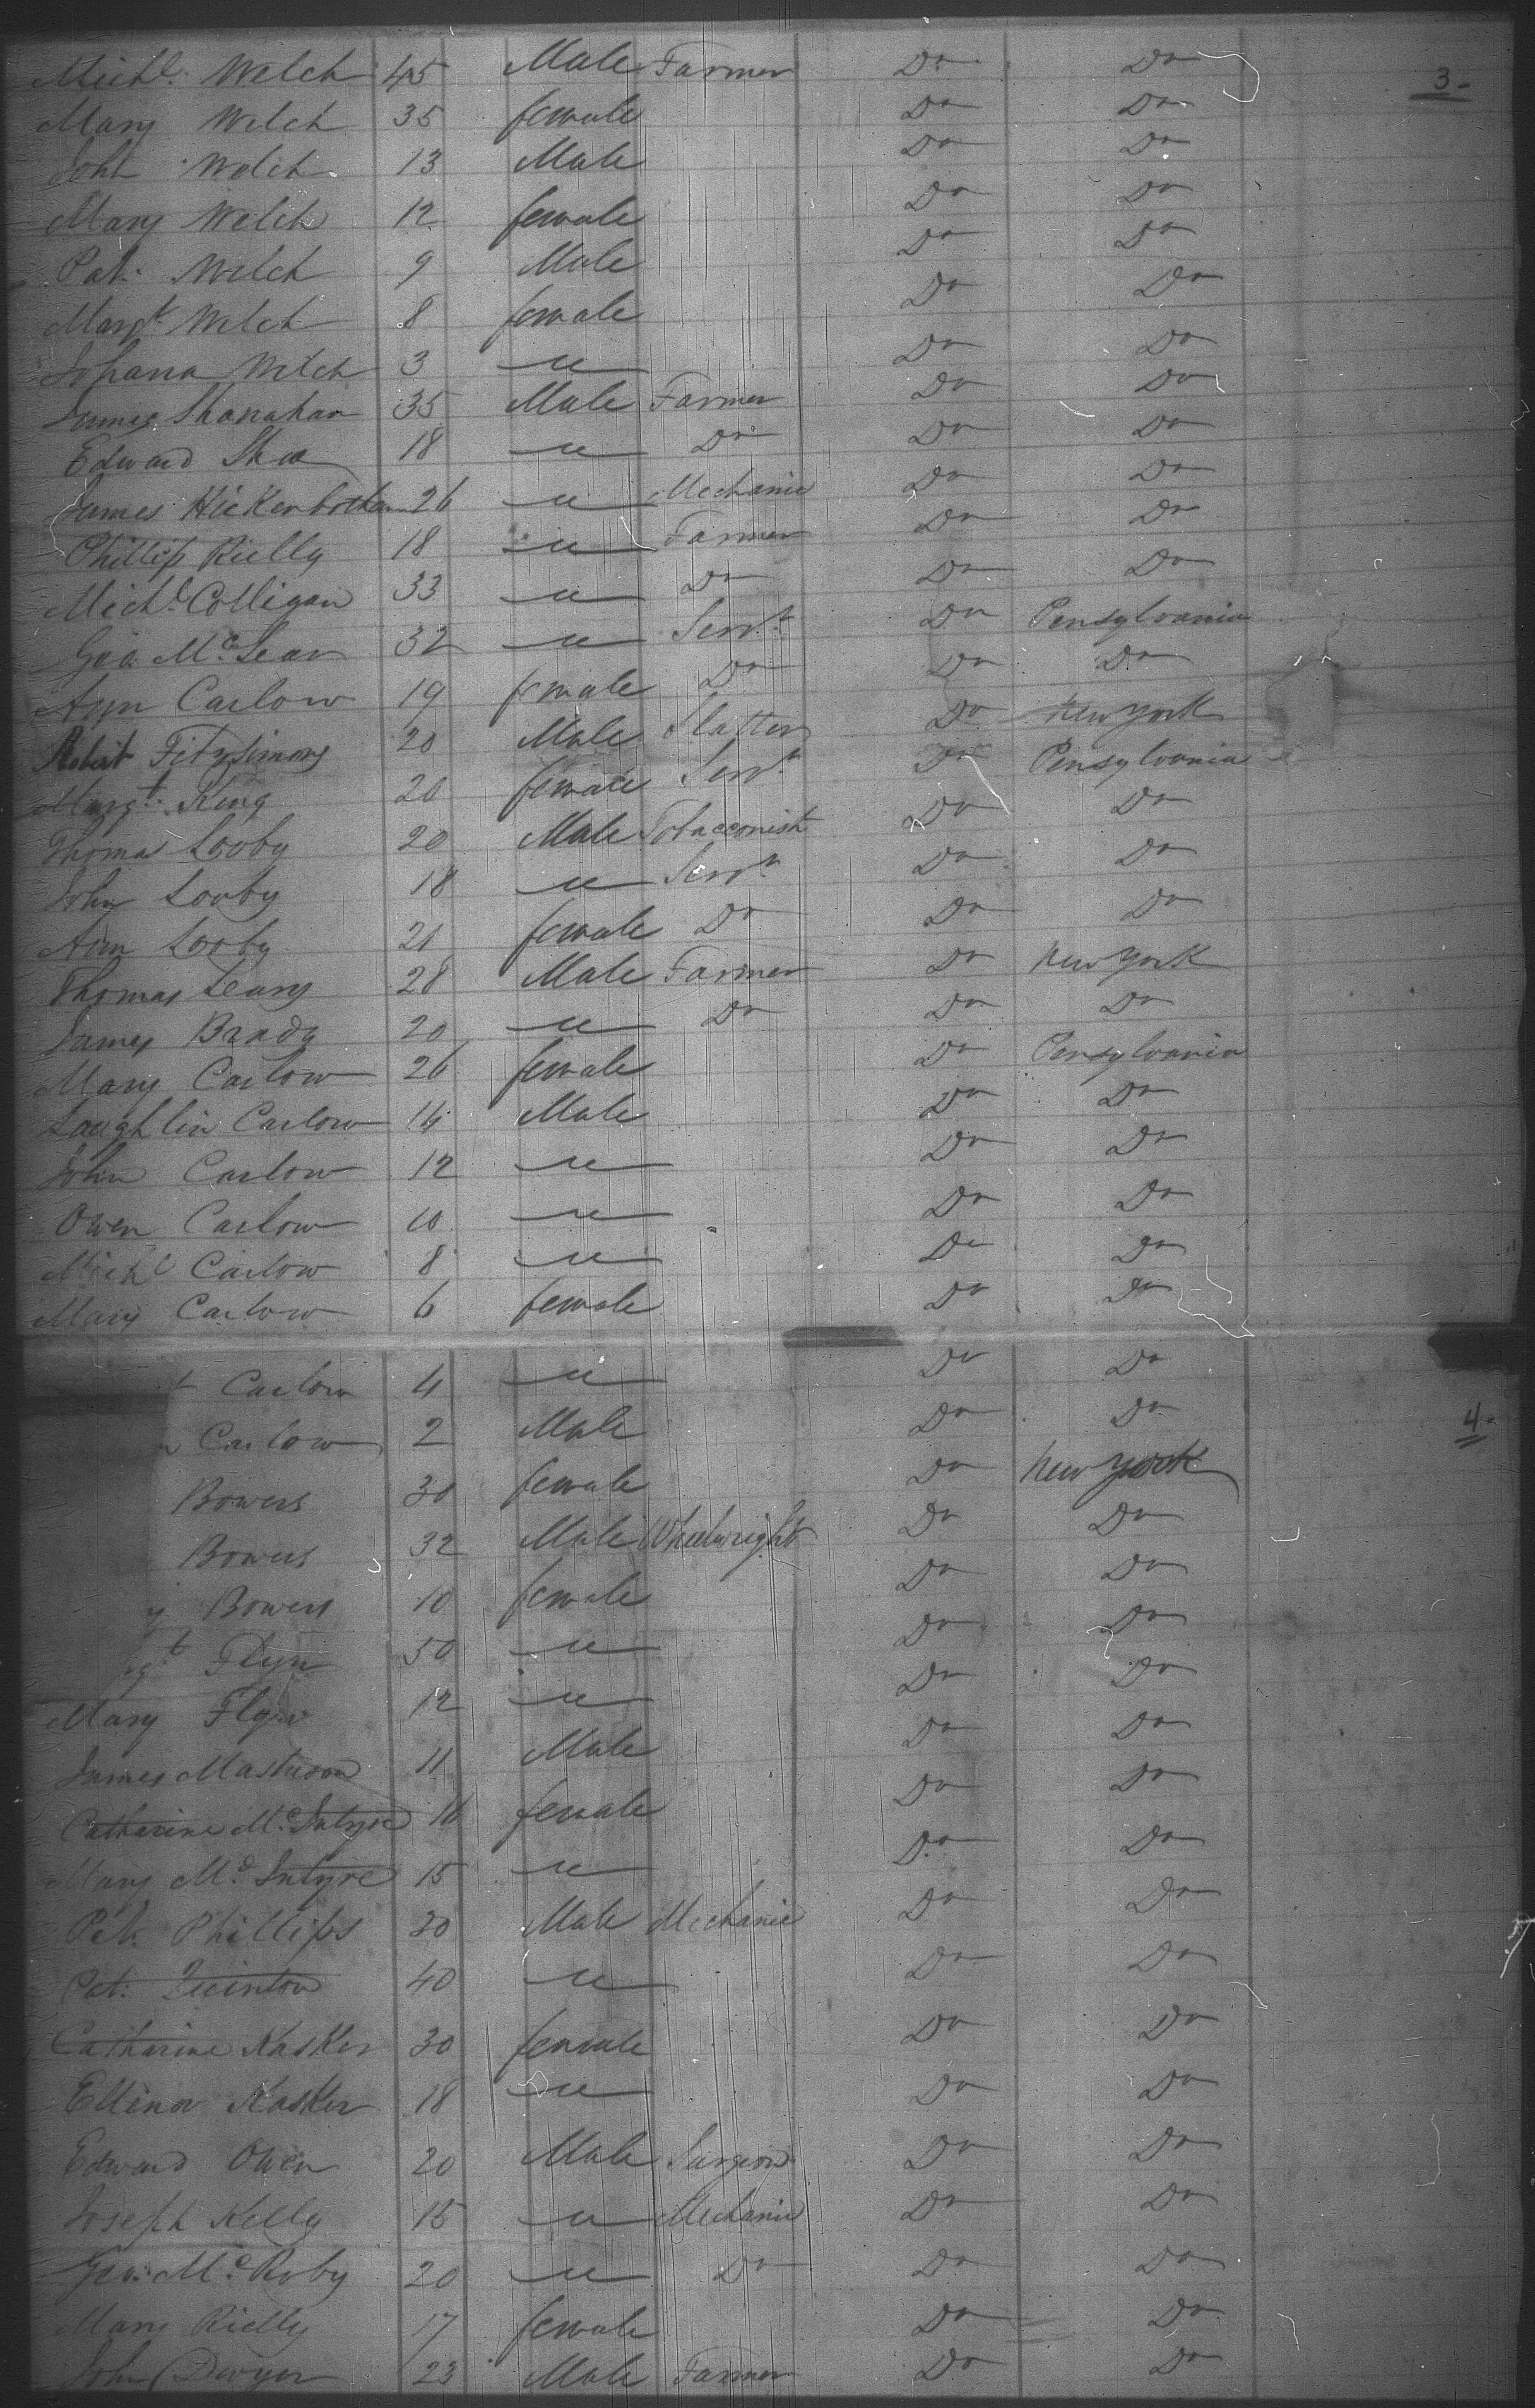 3-
Mich.l Welch 45 Male Farmer Do Do
Mary Welch 35 female Do Do
John Welch 13 Male Do Do
Mary Welch 12 female Do Do
Pat. Welch 9 Male Do Do
Margt Welch 8 female Do Do
Johana Welch 3 " Do Do
James Shanahan 35 Male Farmer Do Do
Edward Shea 18 " Do Do Do
James Hickenbotham 26 " Mechanic Do Do
Phillip Rielly 18 " Farmer Do Do
Mich.l Colligan 33 " Do Do Do
Geo. McLean 32 " Serv.t Do Pensylvania
Ann Carlow 19 female Do Do Do
Robert Fitzsimons 20 Male Slatter Do New York
Margt. King 20 female Serv.t Do Pensylvania
Thomas Looby 20 Male Tobacconist Do Do
John Looby 18 " Serv.t Do Do
Ann Looby 21 female Do Do Do
Thomas Leary 28 Male Farmer Do New York
James Brady 20 " Do Do Do
Mary Carlow 26 female Do Pensylvania
Laughlin Carlow 14 Male Do Do
John Carlow 12 " Do Do
Owen Carlow 10 " Do Do
Michl Carlow 8 " Do Do
Mary Carlow 6 female Do Do
4-
t Carlow 4 " Do Do
Carlow 2 Male Do Do
Bowers 30 female Do New York
Bowers 32 Male Wheelwright Do Do
y Bowers 10 female Do Do
gt Flyn 50 " Do Do
Mary Flyn 12 " Do Do
James Masterson 11 Male Do Do
Catharine McIntyre 16 female Do Do
Mary McIntyre 15 " Do Do
Pat. Phillips 30 Male Mechanic Do Do
Pat. 40 " Do Do
Catharine Kasker 30 female Do Do
Ellinor Kasker 18 " Do Do
Edward Owen 20 Male Surgeon Do Do
Joseph Kelly 15 " Mechanic Do Do
Geo. McRoby 20 " Do Do Do
Mary Rielly 17 female Do Do
John Dwyer 23 Male Farmer Do Do